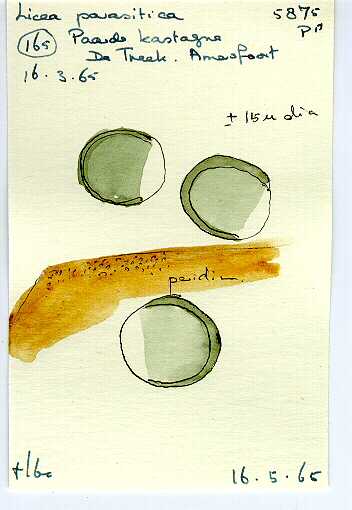 Licea parasitica 5875
165 Paarde kastagne
De Treek. Amersfoort
16.3.65
± 15 µ dia
peridium
16.5.65